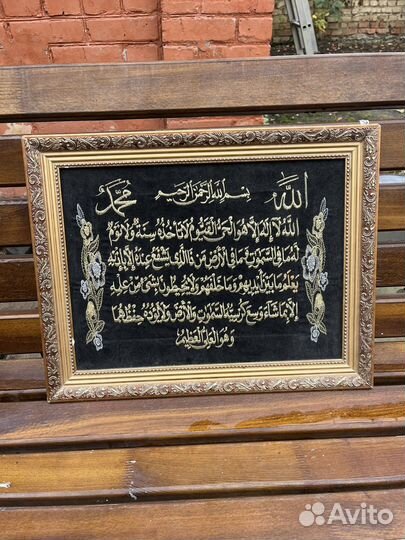 الله
بسم الله الرحمن الرحيم
محمد
الله لا إله إلا هو الحي القيوم لا تأخذه سنة ولا نوم
له ما في السموات وما في الأرض من ذا الذي يشفع عنده إلا بإذنه
يعلم ما بين أيديهم وما خلفهم ولا يحيطون بشيء من علمه
إلا بما شاء وسع كرسيه السموات والأرض ولا يؤده حفظهما
وهو العلي العظيم
Avito